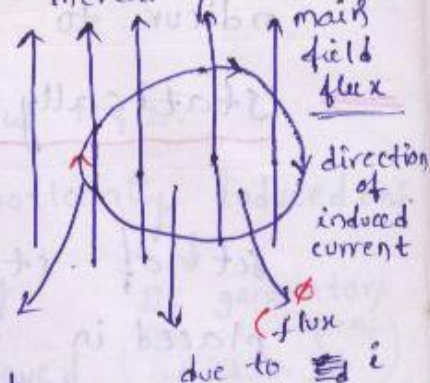 main
field
flux
direction
of
induced
current
φ
flux
due to i